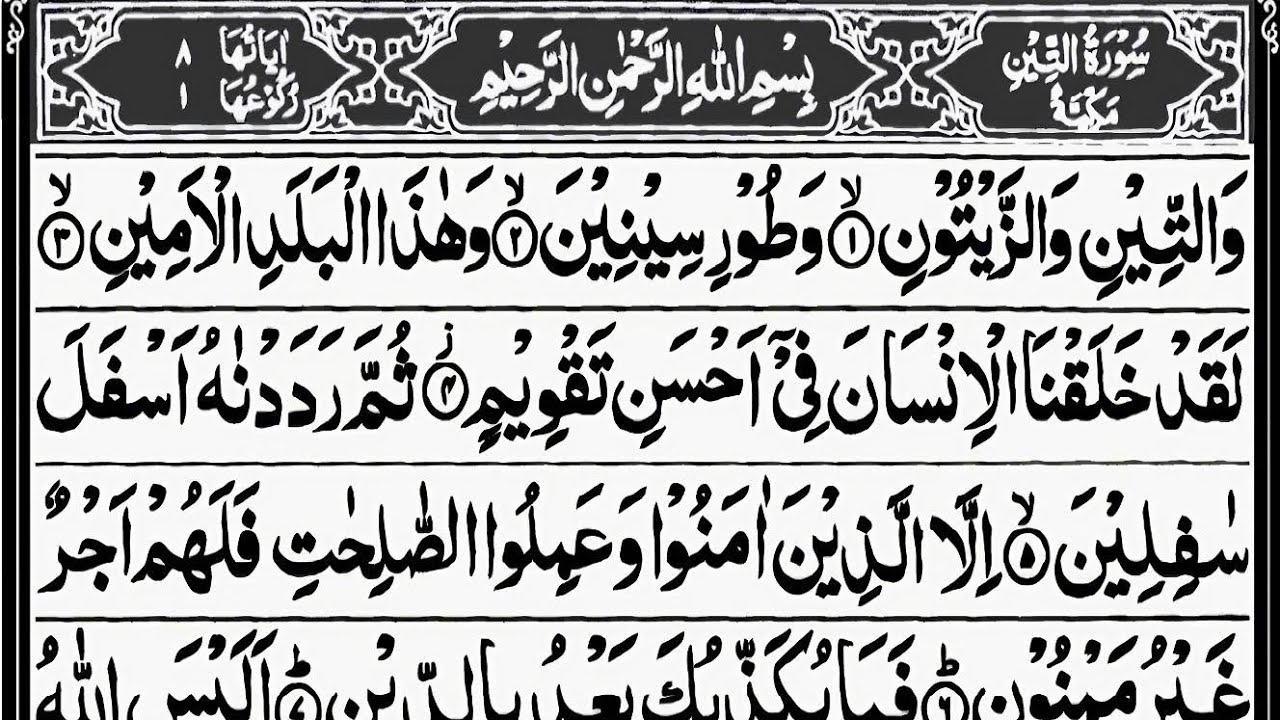 سُوْرَةُ التِّيْنِ مَكِّيَّةٌ
بِسْمِ اللهِ الرَّحْمٰنِ الرَّحِيْمِ
اٰيَاتُهَا ٨
رُكُوْعُهَا ١
وَالتِّيْنِ وَالزَّيْتُوْنِ ۙ﴿١﴾ وَطُوْرِ سِيْنِيْنَ ۙ﴿٢﴾ وَهٰذَا الْبَلَدِ الْاَمِيْنِ ۙ﴿٣﴾
لَقَدْ خَلَقْنَا الْاِنْسَانَ فِيْۤ اَحْسَنِ تَقْوِيْمٍ ز﴿۴﴾ ثُمَّ رَدَدْنٰهُ اَسْفَلَ
سٰفِلِيْنَ ۙ﴿۵﴾ اِلَّا الَّذِيْنَ اٰمَنُوْا وَعَمِلُوا الصّٰلِحٰتِ فَلَهُمْ اَجْرٌ
غَيْرُ مَمْنُوْنٍ ؕ﴿۶﴾ فَمَا يُكَذِّبُكَ بَعْدُ بِالدِّيْنِ ؕ﴿۷﴾ اَلَيْسَ اللّٰهُ